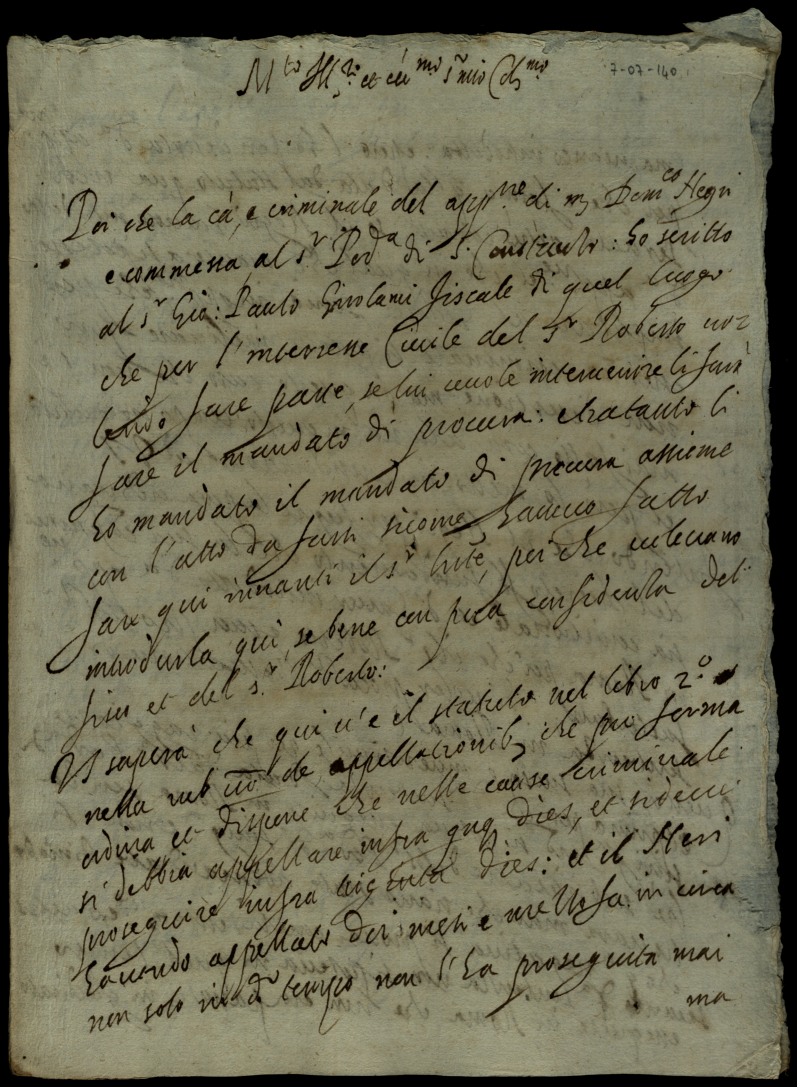 M.to Ill.re et ecc.mo s.r mio Oss.mo
7-07-140
Poi che la cã, e criminale del app.ne di m Dom.co Negri
e commessa al s.r Pod.a di S. : ho scritto
al s.r Gio: Paulo Girolami fiscale di quel luogo
che per l'interesse Civile del s.r Roberto vo=
lendo fare parte, se lui vuole intervenire li farà
fare il mandato di procura: et ratanto li
ho mandato il mandato di procura assieme
con l'atto da farsi sicome havevo fatto
fare qui innanti il s.r lute, per che volevano
introdurla qui, se bene con poca del
fisco et del s.r Roberto:
VS saperà che qui v'è il statuto nel libro 2.o
nella rub de appellationib, che pro forma
ordina et dispone che nelle cause criminale
si debbia appellare infra quq dies, et si deve
proseguire infra viginta dies: et il Neri
havendo appellato doi mesi e mezzo fa in circa
non solo in d.o tempo non l'ha proseguita mai
ma